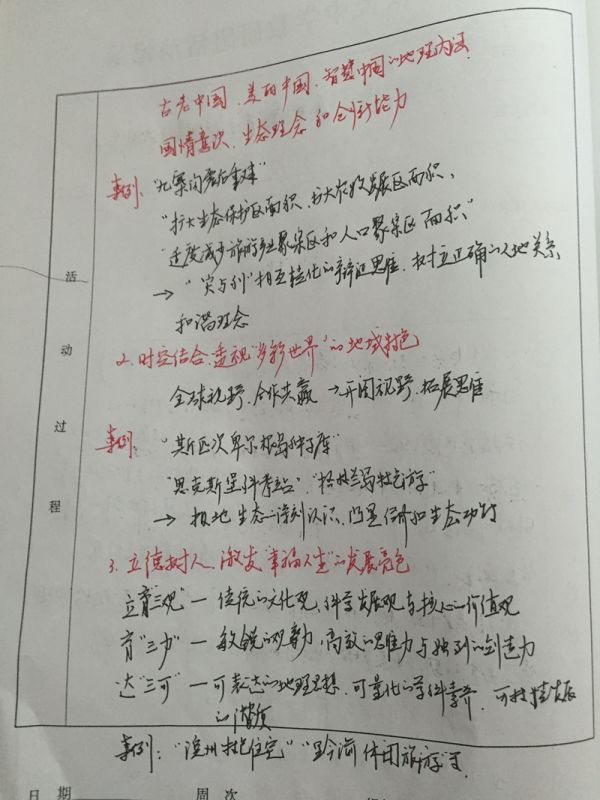 古老中国、美丽中国、智慧中国的地理内涵
国情意识、生态理念和创新能力
案例："九寨沟震后重建"
"扩大生态保护区面积、扩大农牧发展区面积、
"适度减少旅游产业聚集区和人口聚集区面积"
→ "灾与利"相互转化的辩证思维、树立正确的人地关系
和谐理念
2. 时空结合,透视"多彩世界"的地域特色
全球视野、合作共赢 → 开阔视野、拓展思维
案例："斯匹次卑尔根岛种子库"
"思克斯堡科考站"、"格林兰岛特色游"
→ 极地生态 深刻认识,凸显 和生态功能
3. 立德树人,激发"幸福人生"的发展亮色
立育"三观" — 传统的文化观、科学发展观与核心价值观
育"三力" — 敏锐的观察力,高效的思维力与独到的创造力
达"三可" — 可表达的地理思想、可量化的学科素养、可持续发展
的潜质
案例： "住宅" " 旅游"
活动过程
日 期
周 次